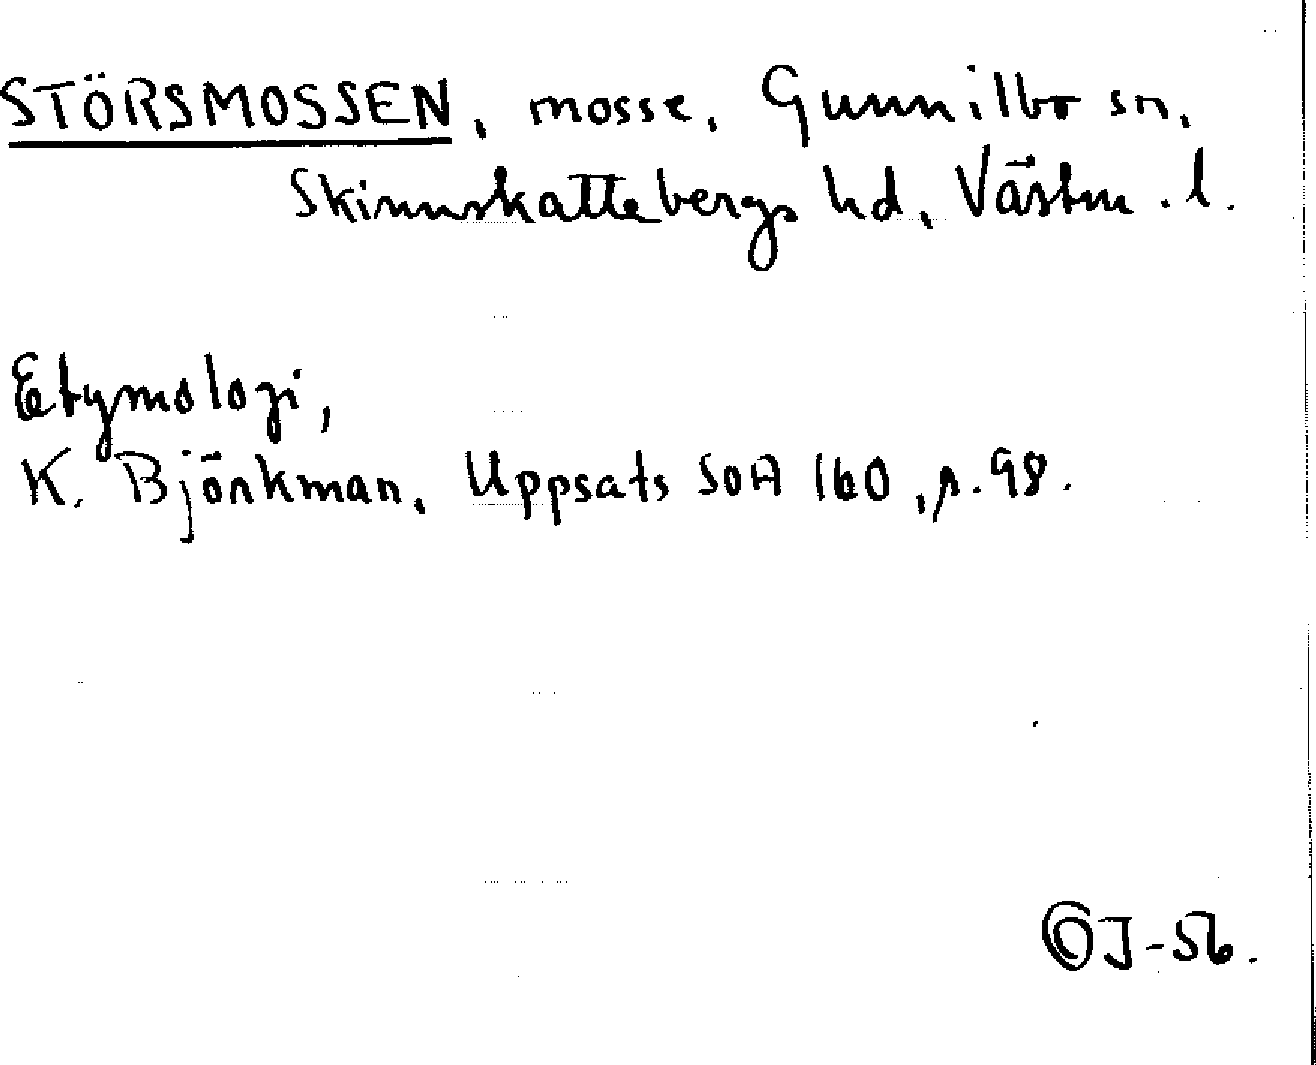 STÖRSMOSSEN, mosse, Gunnilbo sn,
Skinnskattebergs hd, Västm. l.
Etymologi,
K. Björkman, Uppsats SOA 160, p. 98.
J-56.